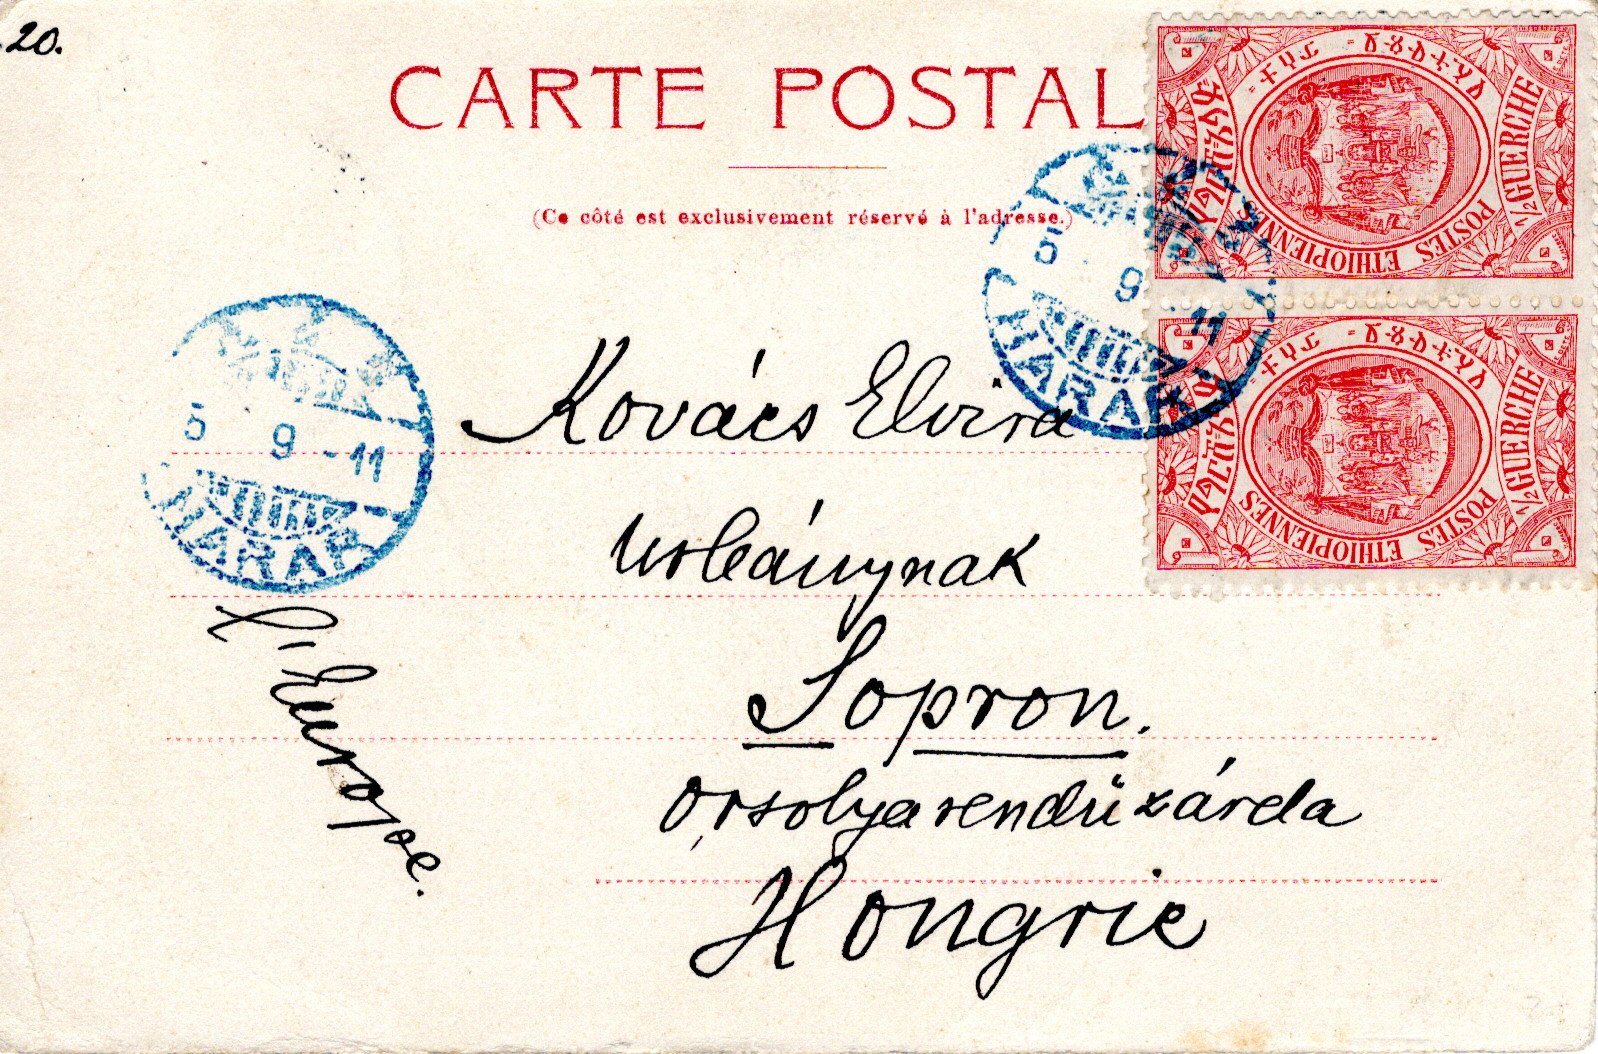 20.
CARTE POSTAL
(Ce côté est exclusivement réservé à l'adresse.)
½ GUERCHE
POSTES ETHIOPIENNES
½ GUERCHE
POSTES ETHIOPIENNES
5 9 -11
HARAR
5 9 -11
HARAR
Kovács Elvira
urleánynak
Sopron.
Orsolyarendüzárda
Hongrie
l'Europe.